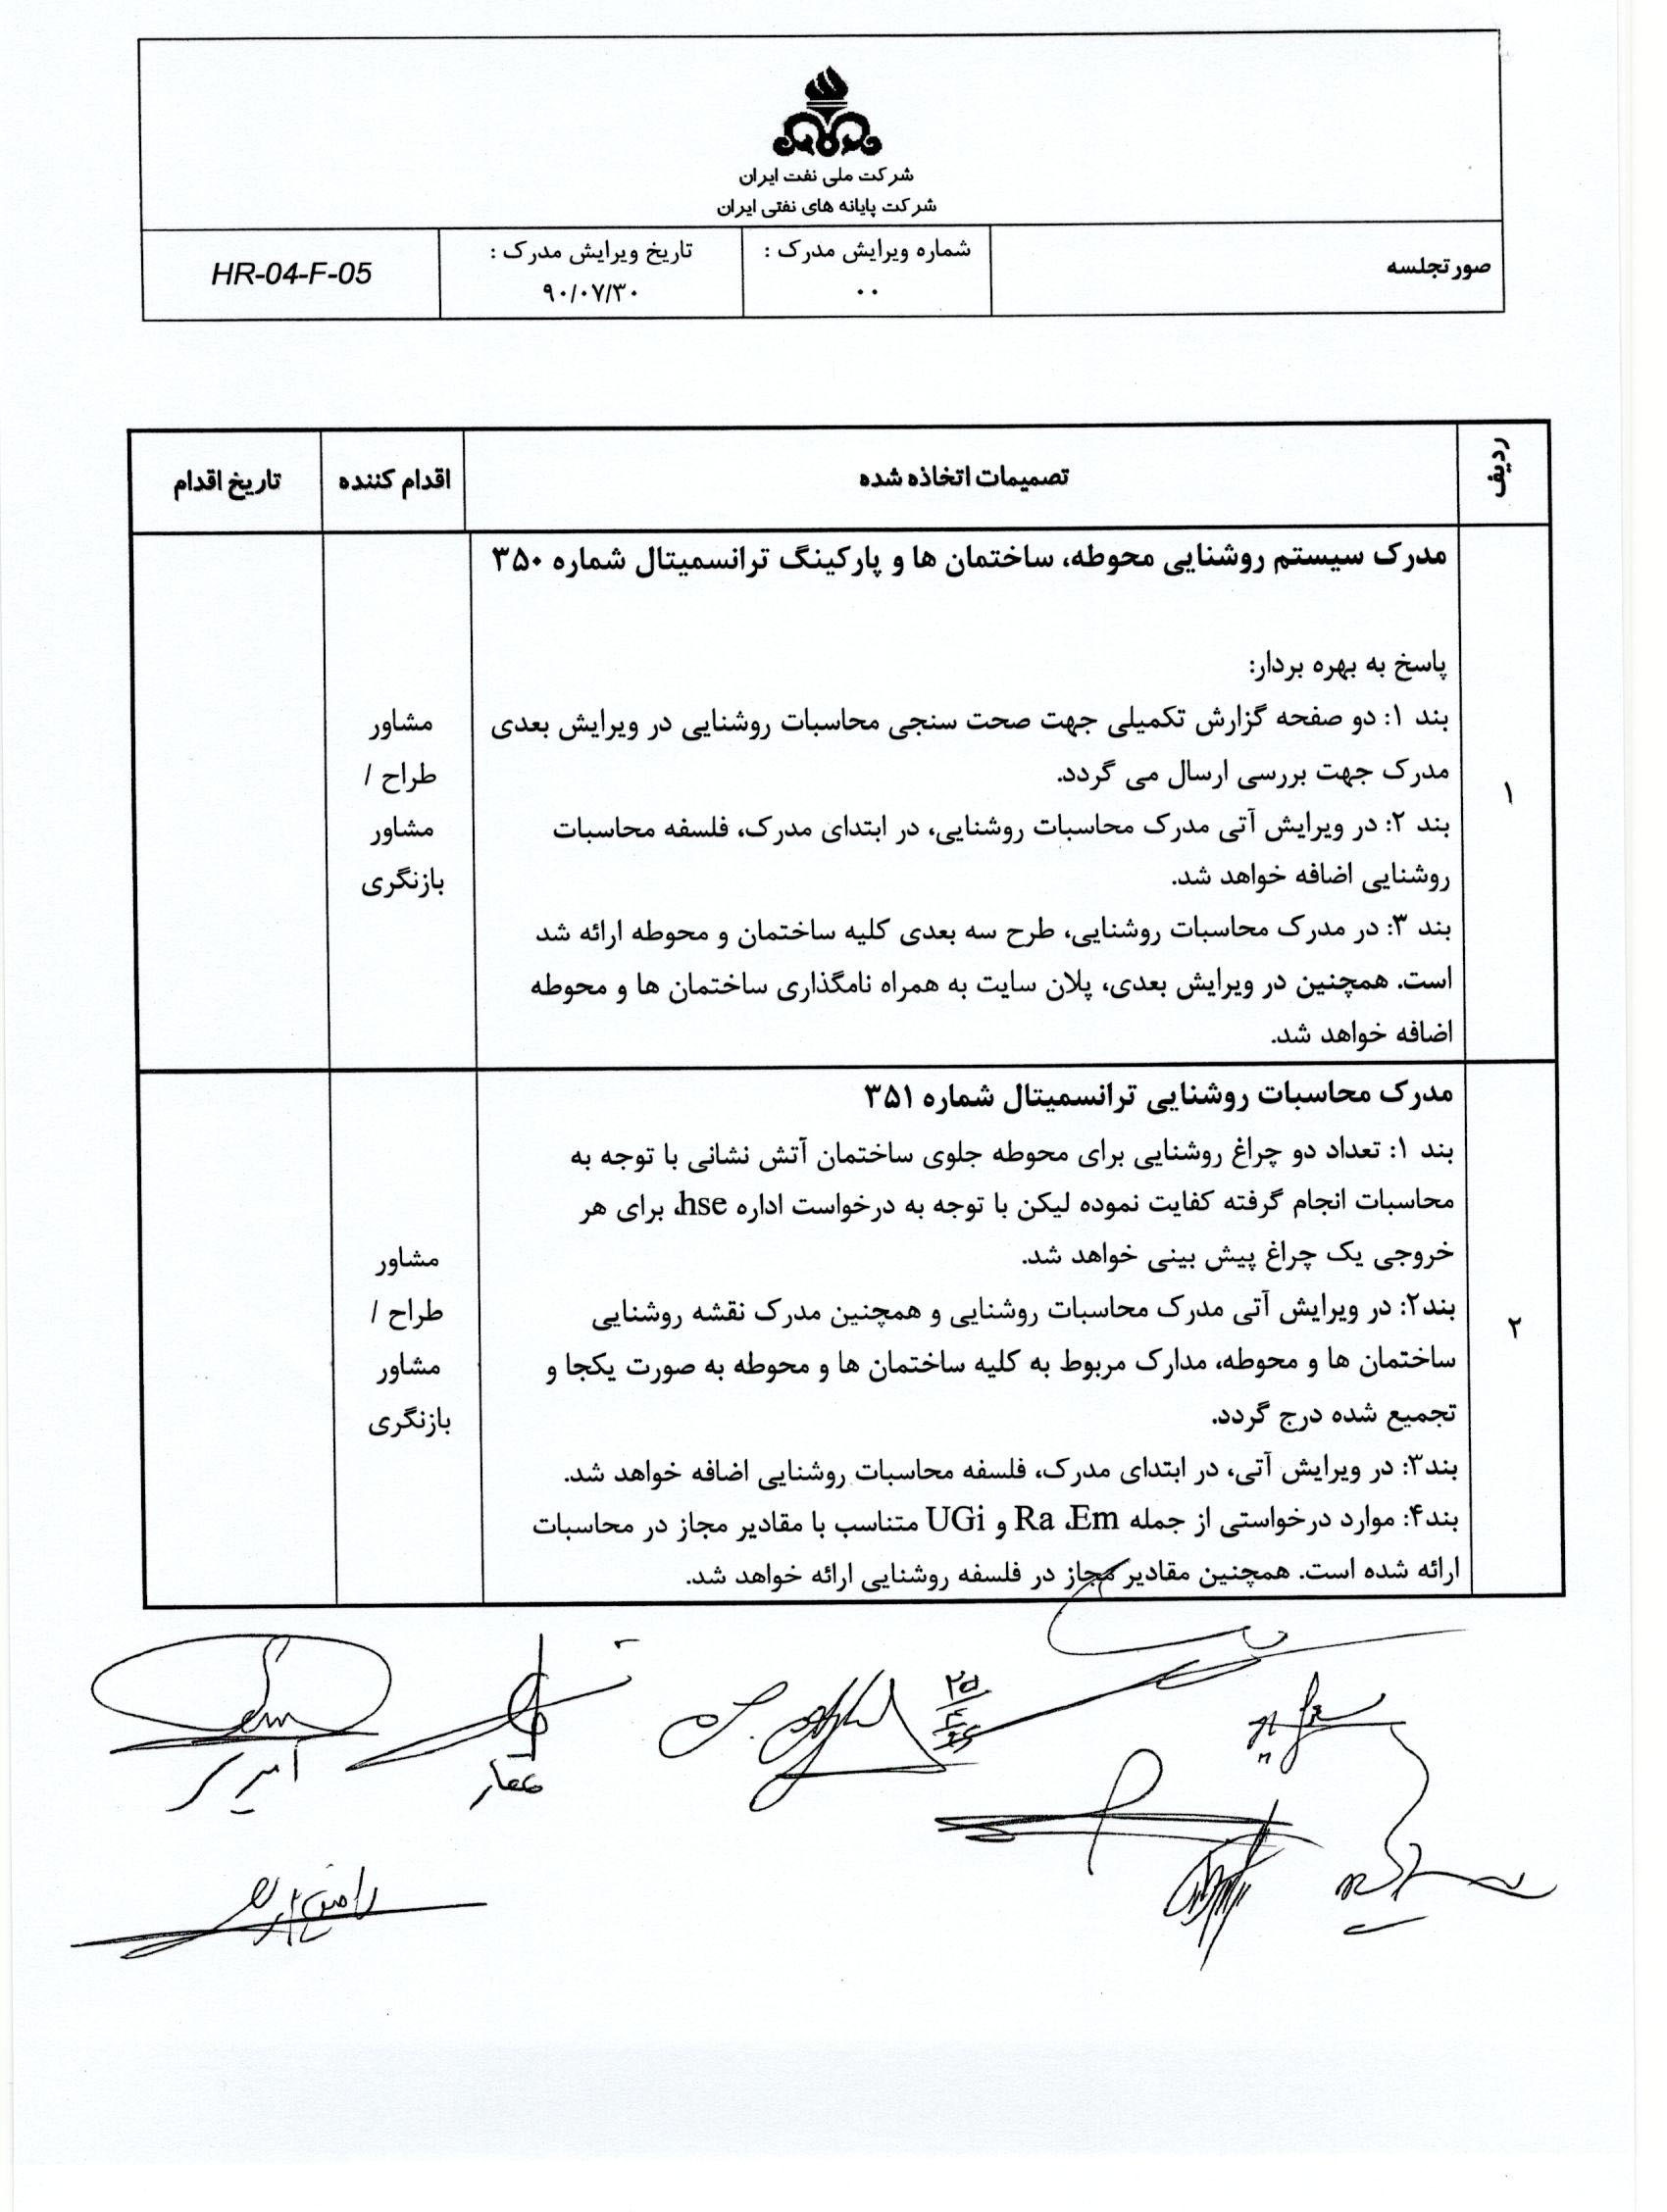 شرکت ملی نفت ایران
شرکت پایانه های نفتی ایران
صورتجلسه
شماره ویرایش مدرک :
۰۰
تاریخ ویرایش مدرک :
۹۰/۰۷/۳۰
HR-04-F-05
ردیف
تصمیمات اتخاذه شده
اقدام کننده
تاریخ اقدام
۱
مدرک سیستم روشنایی محوطه، ساختمان ها و پارکینگ ترانسمیتال شماره ۳۵۰
پاسخ به بهره بردار:
بند ۱: دو صفحه گزارش تکمیلی جهت صحت سنجی محاسبات روشنایی در ویرایش بعدی
مدرک جهت بررسی ارسال می گردد.
بند ۲: در ویرایش آتی مدرک محاسبات روشنایی، در ابتدای مدرک، فلسفه محاسبات
روشنایی اضافه خواهد شد.
بند ۳: در مدرک محاسبات روشنایی، طرح سه بعدی کلیه ساختمان و محوطه ارائه شد
است. همچنین در ویرایش بعدی، پلان سایت به همراه نامگذاری ساختمان ها و محوطه
اضافه خواهد شد.
مشاور
طراح /
مشاور
بازنگری
۲
مدرک محاسبات روشنایی ترانسمیتال شماره ۳۵۱
بند ۱: تعداد دو چراغ روشنایی برای محوطه جلوی ساختمان آتش نشانی با توجه به
محاسبات انجام گرفته کفایت نموده لیکن با توجه به درخواست اداره hse، برای هر
خروجی یک چراغ پیش بینی خواهد شد.
بند۲: در ویرایش آتی مدرک محاسبات روشنایی و همچنین مدرک نقشه روشنایی
ساختمان ها و محوطه، مدارک مربوط به کلیه ساختمان ها و محوطه به صورت یکجا و
تجمیع شده درج گردد.
بند۳: در ویرایش آتی، در ابتدای مدرک، فلسفه محاسبات روشنایی اضافه خواهد شد.
بند۴: موارد درخواستی از جمله Ra ،Em و UGi متناسب با مقادیر مجاز در محاسبات
ارائه شده است. همچنین مقادیر مجاز در فلسفه روشنایی ارائه خواهد شد.
مشاور
طراح /
مشاور
بازنگری